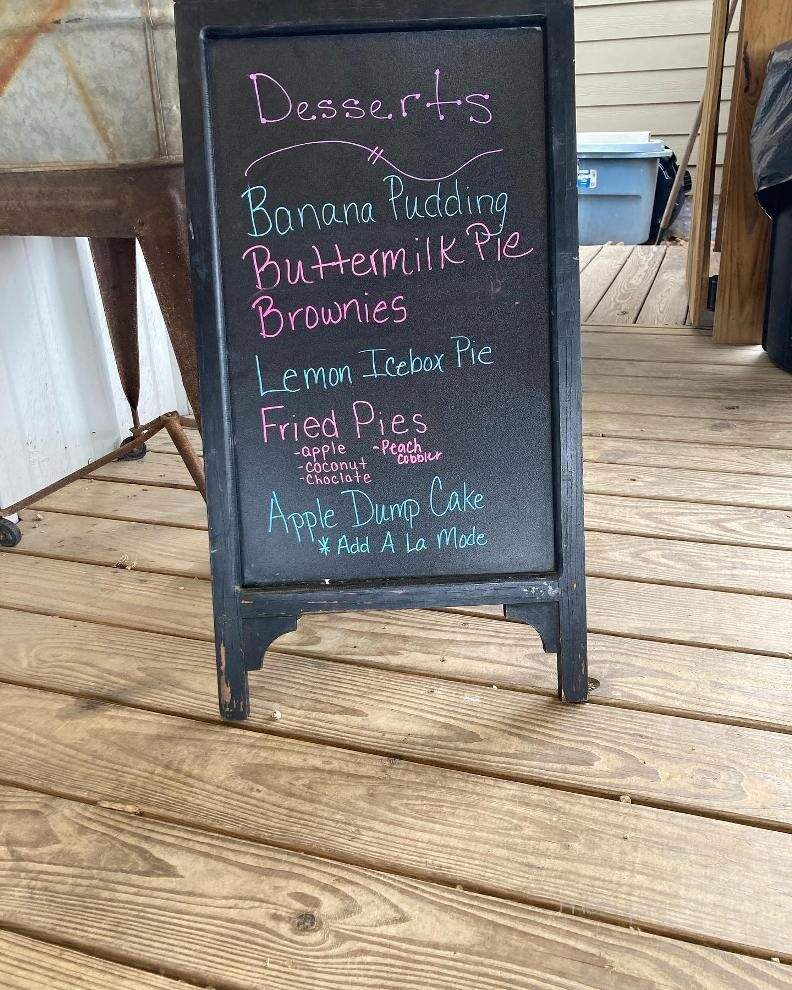 Desserts
Banana Pudding
Buttermilk Pie
Brownies
Lemon Icebox Pie
Fried Pies
-apple -Peach Cobbler
-coconut
-Choclate
Apple Dump Cake
* Add A La Mode